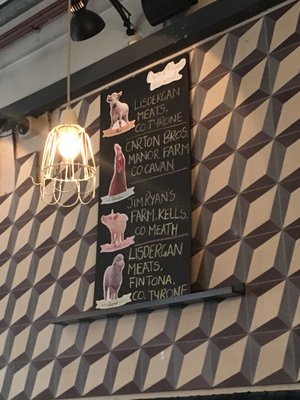 LISDERGAN
MEATS,
CO. TYRONE
CARTON BROS,
MANOR FARM
CO CAVAN
JIM RYAN'S
FARM, KELLS,
CO MEATH
LISDERGAN
MEATS,
FINTONA,
CO. TYRONE